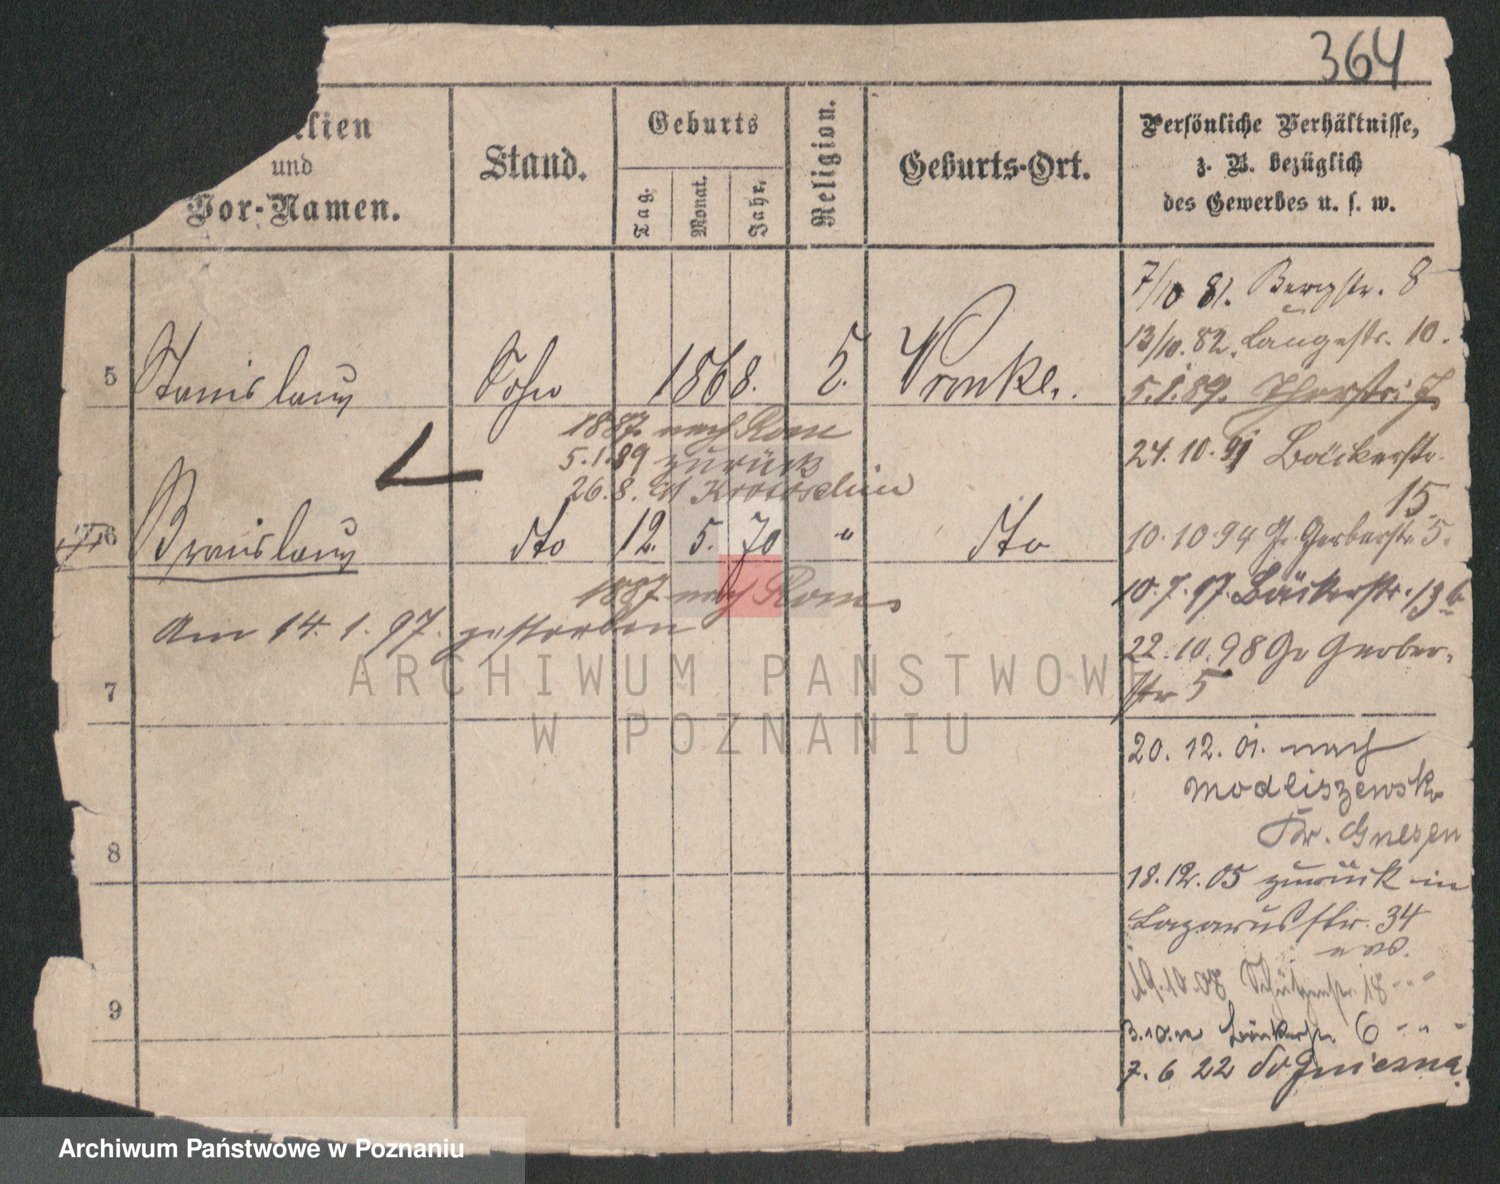 364
und
Vor-Namen.
Stand.
Geburts
Tag.
Monat.
Jahr.
Religion.
Geburts-Ort.
Persönliche Verhältnisse,
z. B. bezüglich
des Gewerbes u. s. w.
7/10 81. Bergstr. 8
13/10. 82. Langestr. 10.
5 Stanislaus Sohn 1868. Wronke.
5.1.89.
1887 nach Rom
5.1.89 zurück
24.10.91 Bäckerstr.
15.
26.8. Krotoschin
6 Bronislaus dto 12. 5. 70 " dto
10.10.94 Gr. Gerberstr. 5.
1887 nach Rom
10.7.97. Bäckerstr. 13b
Am 14.1.97. gestorben
22.10.98 Gr Gerber-
str 5
7
20.12.01. nach
Modliszewsko
Kr. Gnesen
8
18.12.05 zurück in
Lazarusstr. 34
Schützenstr. 18
9
Bäckerstr. 6
7.6 22 do Gniezna
ARCHIWUM PAŃSTWOW
W POZNANIU
Archiwum Państwowe w Poznaniu